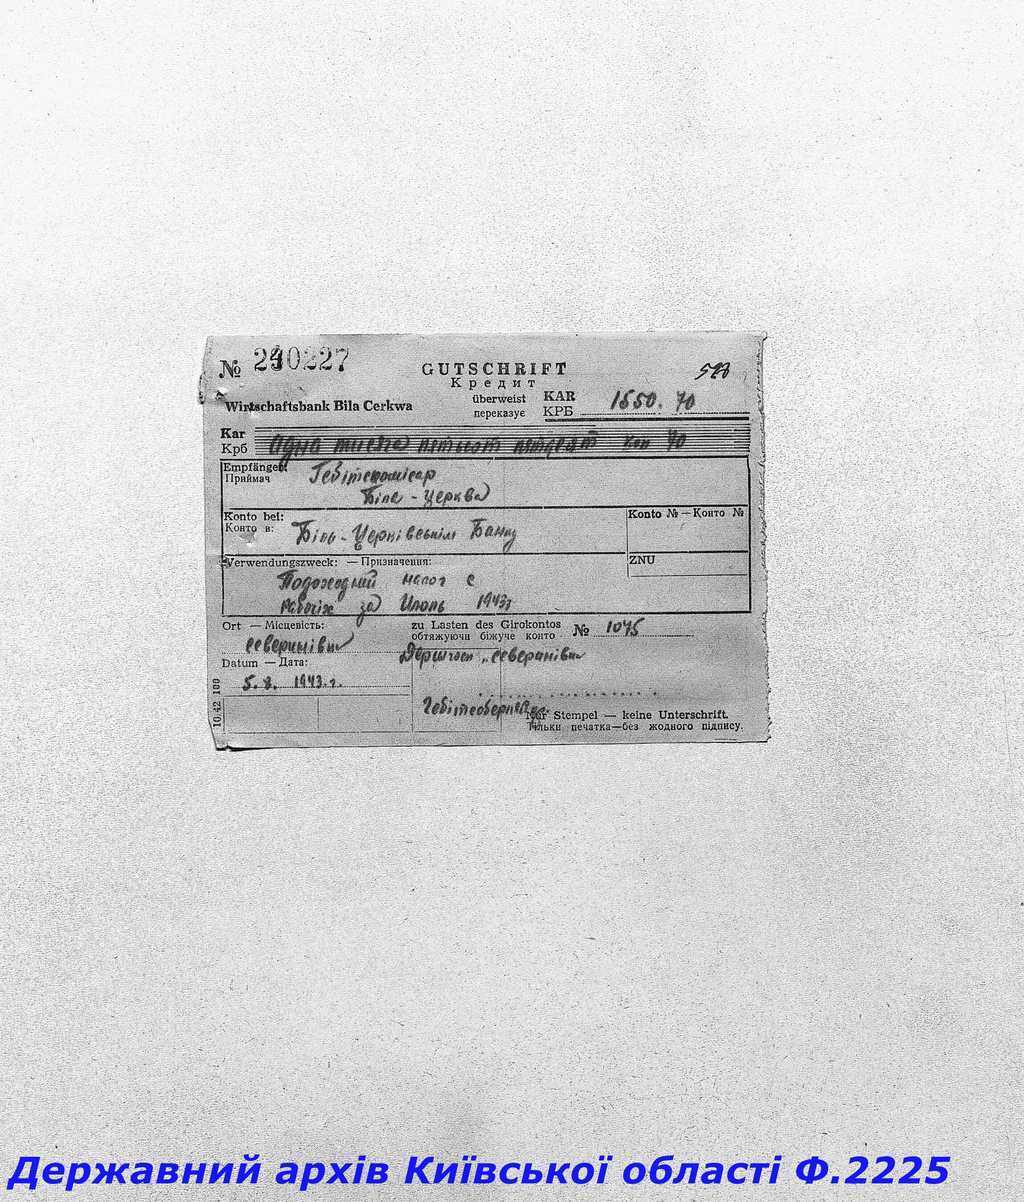 № 240227
GUTSCHRIFT
Кредит
Wirtschaftsbank Bila Cerkwa
überweist KAR 1550.70
переказує КРБ
Kar
Крб одна тисяча пятьсот пятдесят коп 70
Empfänger: Гебітскомісар
Приймач Біла-Церква
Konto bei: Konto № — Конто №
Конто в: Біла-Церківськім Банку
ZNU
Verwendungszweck: — Призначення:
Подоходний налог с
рабочіх за Июль 1943г
Ort — Місцевість: zu Lasten des Girokontos
обтяжуючи біжуче конто № 1075
северинівка
Держгосп „северинівка
Datum — Дата:
5.8. 1943.г.
10.42 100
Nur Stempel — keine Unterschrift.
Тільки печатка—без жодного підпису.
Державний архів Київської області Ф.2225